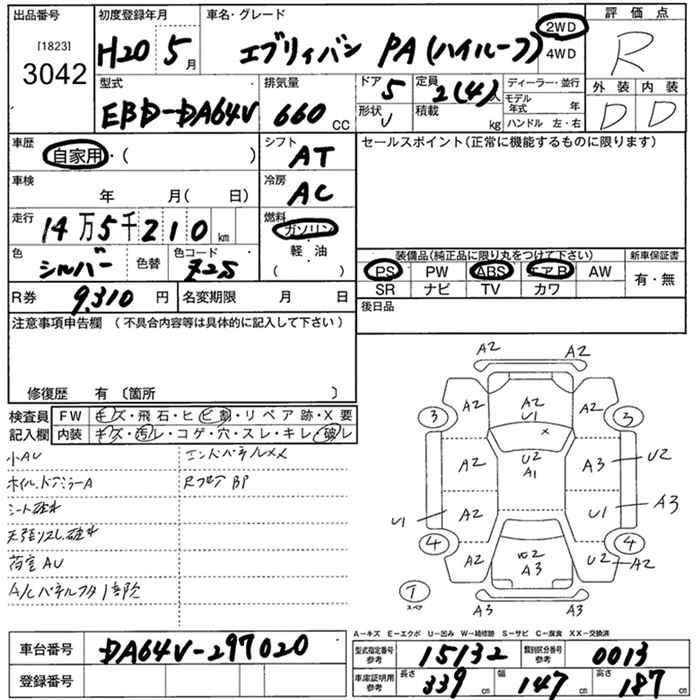 出品番号 初度登録年月 車名・グレード 評価点
[1823] 3042
H20 5月 エブリィバン PA(ハイルーフ) 2WD 4WD R
型式 排気量 ドア 定員 ディーラー・並行 外装 内装
EBD-DA64V 660CC 5 2(4)人 モデル年式 年 D D
形状 V 積載 kg ハンドル 左・右
車歴 自家用・( ) シフト AT セールスポイント(正常に機能するものに限ります)
車検 年 月( 日) 冷房 AC
走行 14万5千210km 燃料 ガソリン 軽・油 ( )
色 シルバー 色替 色コード Z2S
装備品(純正品に限り丸をつけて下さい) 新車保証書
PS PW ABS エアB AW 有・無
SR ナビ TV カワ
R券 9,310円 名変期限 月 日 後日品
注意事項申告欄 (不具合内容等は具体的に記入して下さい)
修復歴 有 〔箇所 〕
検査員記入欄 FW キズ・飛石・ヒビ割・リペア跡・X要
内装 キズ・汚レ・コゲ・穴・スレ・キレ・破レ
小AU エンドパネルXX
ホイル、ドアミラーA Rフロア BP
シート破れ
天張リスレ、破れ
荷室AU
A/Cパネルフタ1部欠
A2 A2
3 A2 A2 U1 A2 3
X
A2 U2 A1 A3 U2
U1 A2 U1 A3
4 A2 U2 A3 U2 A2 4
T スペア
A3 A3
A-キズ E-エクボ U-凹み W-補修跡 S-サビ C-腐食 XX-交換済
車台番号 DA64V-297020
登録番号
型式指定番号参考 15132 類別区分番号参考 0013
車庫証明用参考 長さ 339cm 幅 147cm 高さ 187cm